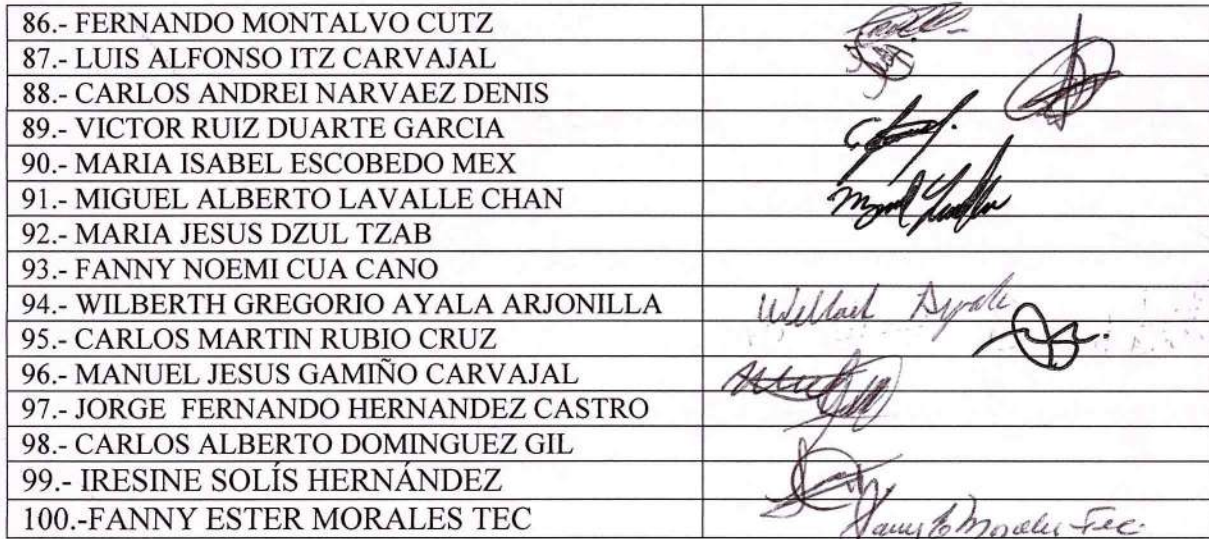 86.- FERNANDO MONTALVO CUTZ
87.- LUIS ALFONSO ITZ CARVAJAL
88.- CARLOS ANDREI NARVAEZ DENIS
89.- VICTOR RUIZ DUARTE GARCIA
90.- MARIA ISABEL ESCOBEDO MEX
91.- MIGUEL ALBERTO LAVALLE CHAN
92.- MARIA JESUS DZUL TZAB
93.- FANNY NOEMI CUA CANO
94.- WILBERTH GREGORIO AYALA ARJONILLA
95.- CARLOS MARTIN RUBIO CRUZ
96.- MANUEL JESUS GAMIÑO CARVAJAL
97.- JORGE FERNANDO HERNANDEZ CASTRO
98.- CARLOS ALBERTO DOMINGUEZ GIL
99.- IRESINE SOLÍS HERNÁNDEZ
100.-FANNY ESTER MORALES TEC Morales Tec